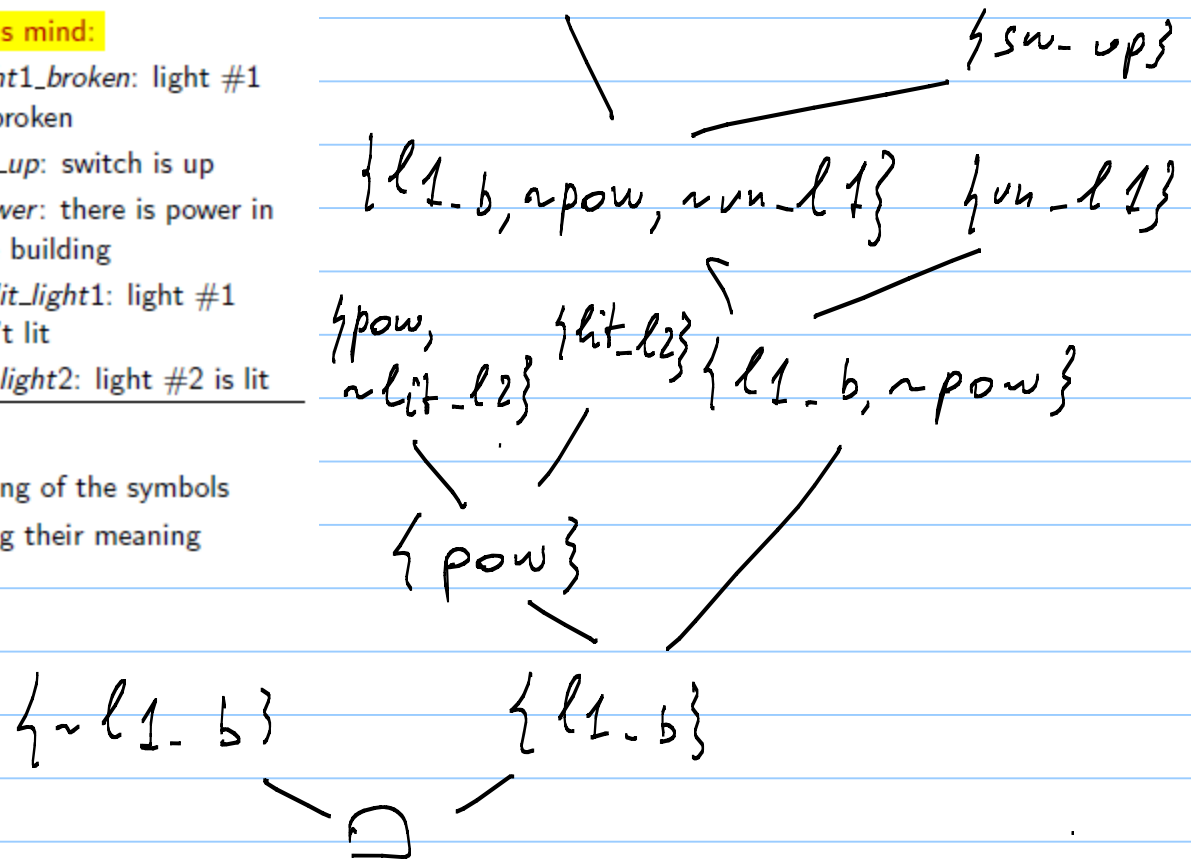 s mind:
nt1_broken: light #1
broken
_up: switch is up
wer: there is power in
building
lit_light1: light #1
't lit
light2: light #2 is lit
ng of the symbols
g their meaning
{sw_up}
{l1_b, ~pow, ~un_l1} {un_l1}
{pow,
~lit_l2} {lit_l2} {l1_b, ~pow}
{pow}
{~l1_b} {l1_b}